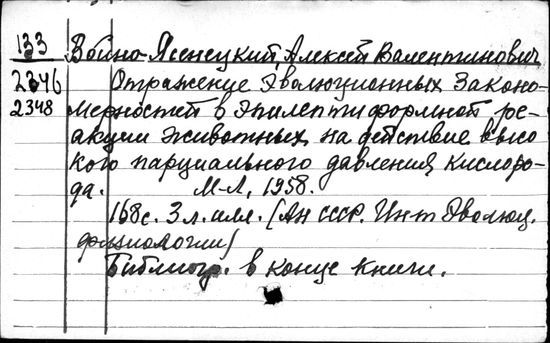 133 Войно-Ясенецкий, Алексей Валентинович
2346 Отражение эволюционных законо-
2348 мерностей в эпилептиформной ре-
акции животных на действие высо
кого парциального давления кислоро-
да. М-Л, 1958.
168с. 3 л. илл. (Ан СССР. Инт Эволюц.
физиологии)
Библиогр. в конце книги.